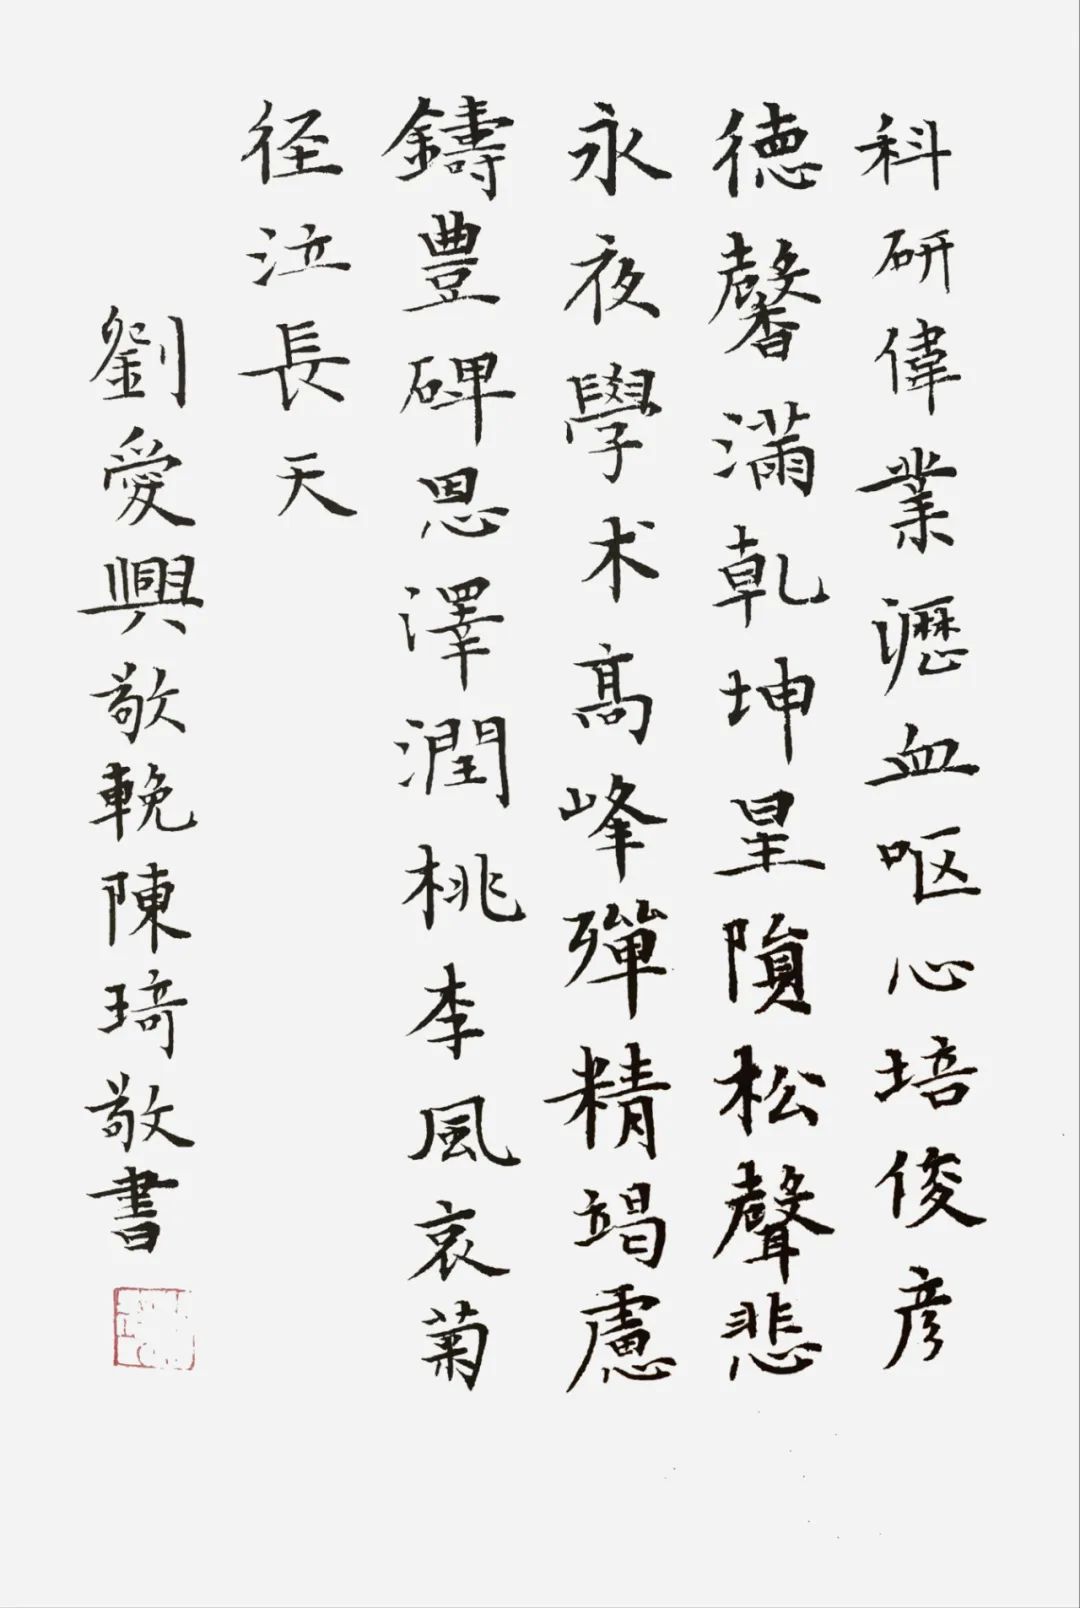 科研偉業瀝血呕心培俊彦
德馨滿乾坤星隕松聲悲
永夜學术高峰殫精竭慮
鑄豊碑恩澤潤桃李風哀菊
径泣長天
劉愛興敬輓陳琦敬書